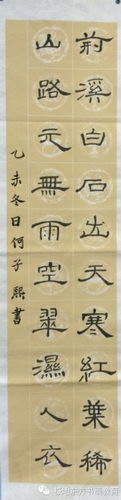 荊溪白石出天寒紅葉稀
山路元無雨空翠濕人衣
乙未冬日何子熙書